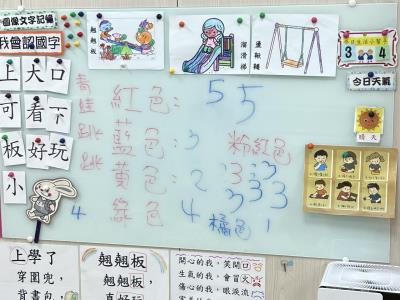 圖像文字記憶
我會認國字
上 大 口
可 看 下
板 好 玩
小
翹翹板
溜滑梯
盪鞦韆
3 4
今日天氣
晴天
青蛙跳跳
4
紅色: 5 5
藍色: 3
黃色: 2
綠色 4
粉紅色
3 3 3
3 3 3
橘色 1
上學了
穿圍兜,
背書包,
翹翹板
翹翹板,
真好玩
開心的我,笑開口
生氣的我,會冒火
傷心的我,眼淚流